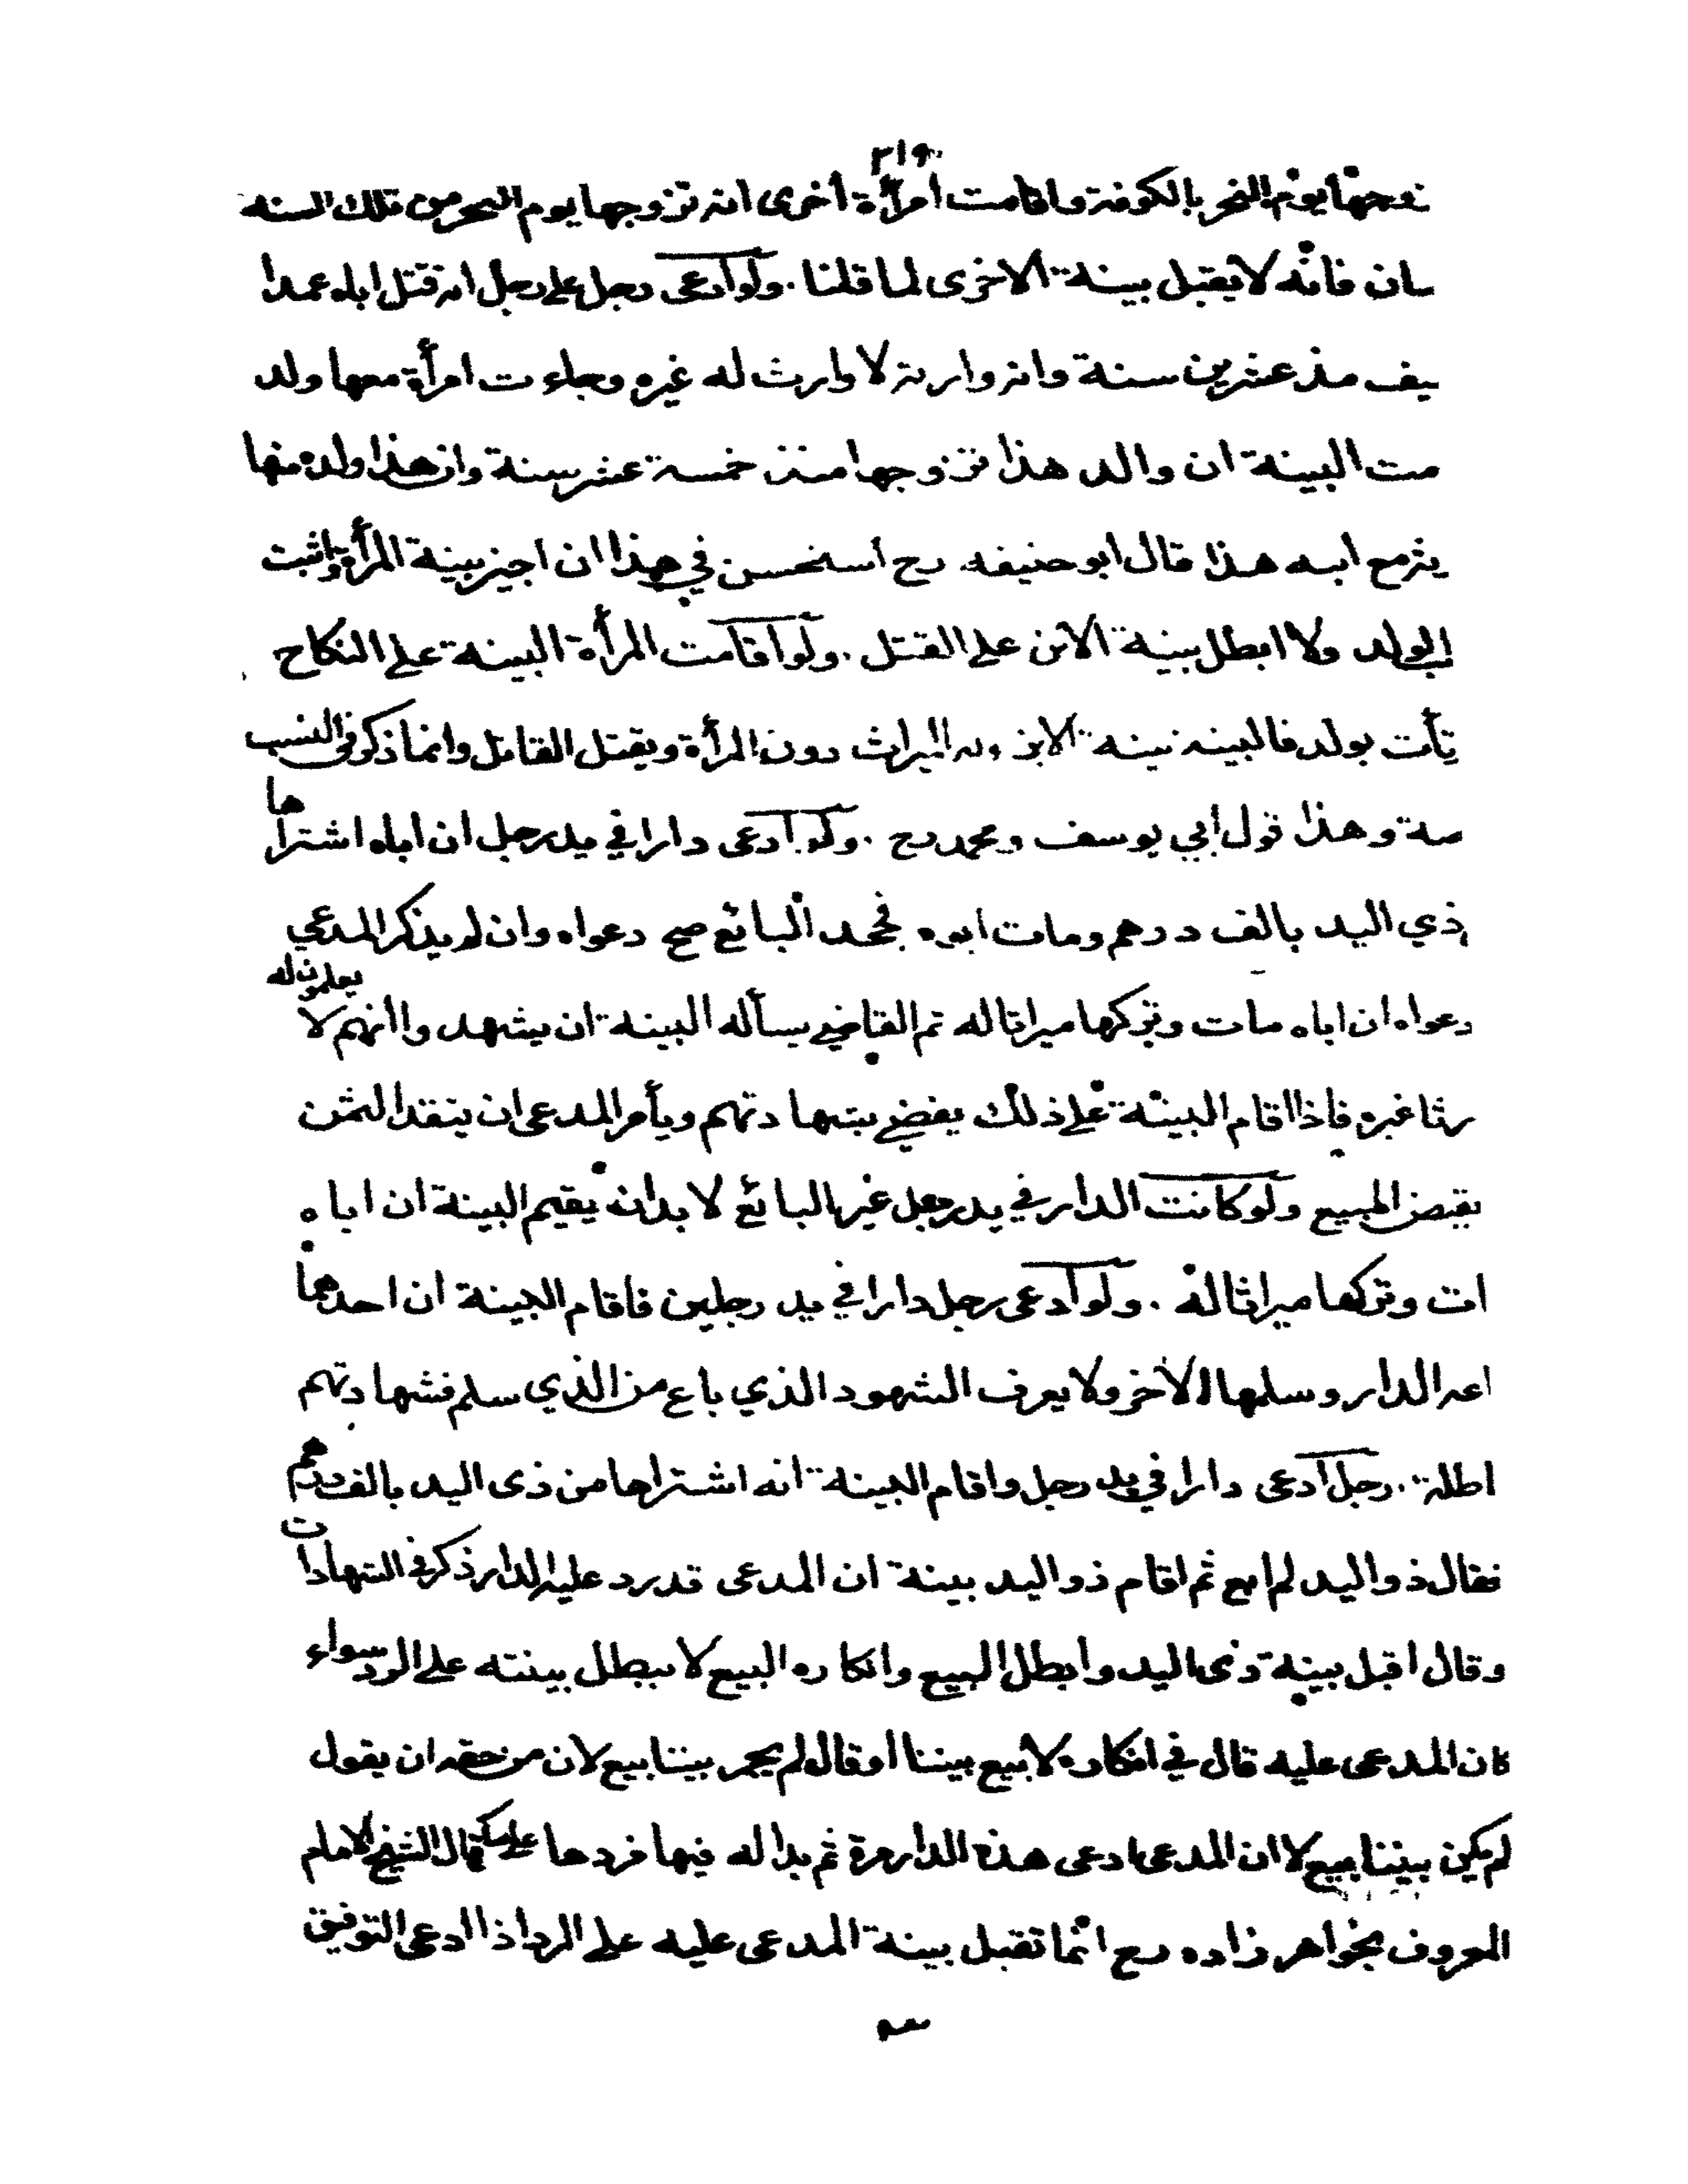 زوجها يوم النحر بالكوفة واقامت امرأة أخرى انه تزوجها يوم النحر من تلك السنه
سان فانه لا يقبل بينة الاخرى لما قلنا . ولو ادعى رجل على رجل انه قتل اباه عمدا
يف مذ عشرين سنة وانه وارثه لا وارث له غيره وجاءت امرأة معها ولد
مت البينة ان والد هذا تزوجها منذ خمسة عشر سنة وان هذا ولده منها
يثه مع ابنه هذا قال ابو حنيفه رح استحسن في هذا ان اجيز بينة المرأة واثبت
الولد ولا ابطل بينة الابن على القتل . ولو اقامت المرأة البينة على النكاح
تأت بولد فالبينه بينه الابن وله الميراث دون المرأة ويقتل القاتل وانما ذكر في النسب
سة وهذا قول ابي يوسف ومحمد رح . ولو ادعى دارا في يد رجل ان اباه اشتراها
ذي اليد بالف درهم ومات ابوه فجحد البائع صح دعواه وان لم يذكر المدعي
دعواه ان اباه مات وتركها ميراثا له ثم القاضي يسأله البينة ان يشهدوا انهم لا يعلمون له
رثا غيره فاذا اقام البينة على ذلك يقضي بشهادتهم ويأمر المدعى ان ينقد الثمن
يقبض المبيع ولو كانت الدار في يد رجل غير البائع لا بد ان يقيم البينة ان اباه
ات وتركها ميراثا له . ولو ادعى رجل دارا في يد رجلين فاقام البينة ان احدهما
اعه الدار وسلمها الاخر ولا يعرف الشهود الذي باع من الذي سلم فشهادتهم
اطلة . رجل ادعى دارا في يد رجل واقام البينة انه اشتراها من ذى اليد بالف درهم
فقال ذو اليد لم ابع ثم اقام ذو اليد بينة ان المدعى قد رد عليه الدار ذكر في الشهادات
وقال اقبل بينة ذى اليد وابطل البيع وانكاره البيع لا يبطل بينته على الرد سواء
كان المدعى عليه قال في انكاره لا بيع بيننا او قال لم يجر بيننا بيع لان من حقه ان يقول
لم يكن بيننا بيع لا ان المدعى ادعى هذه الدار مرة ثم بدا له فيها فردها على قال الشيخ الامام
المعروف بخواهر زاده رح انما تقبل بينة المدعى عليه على الرد اذا ادعى التوفيق